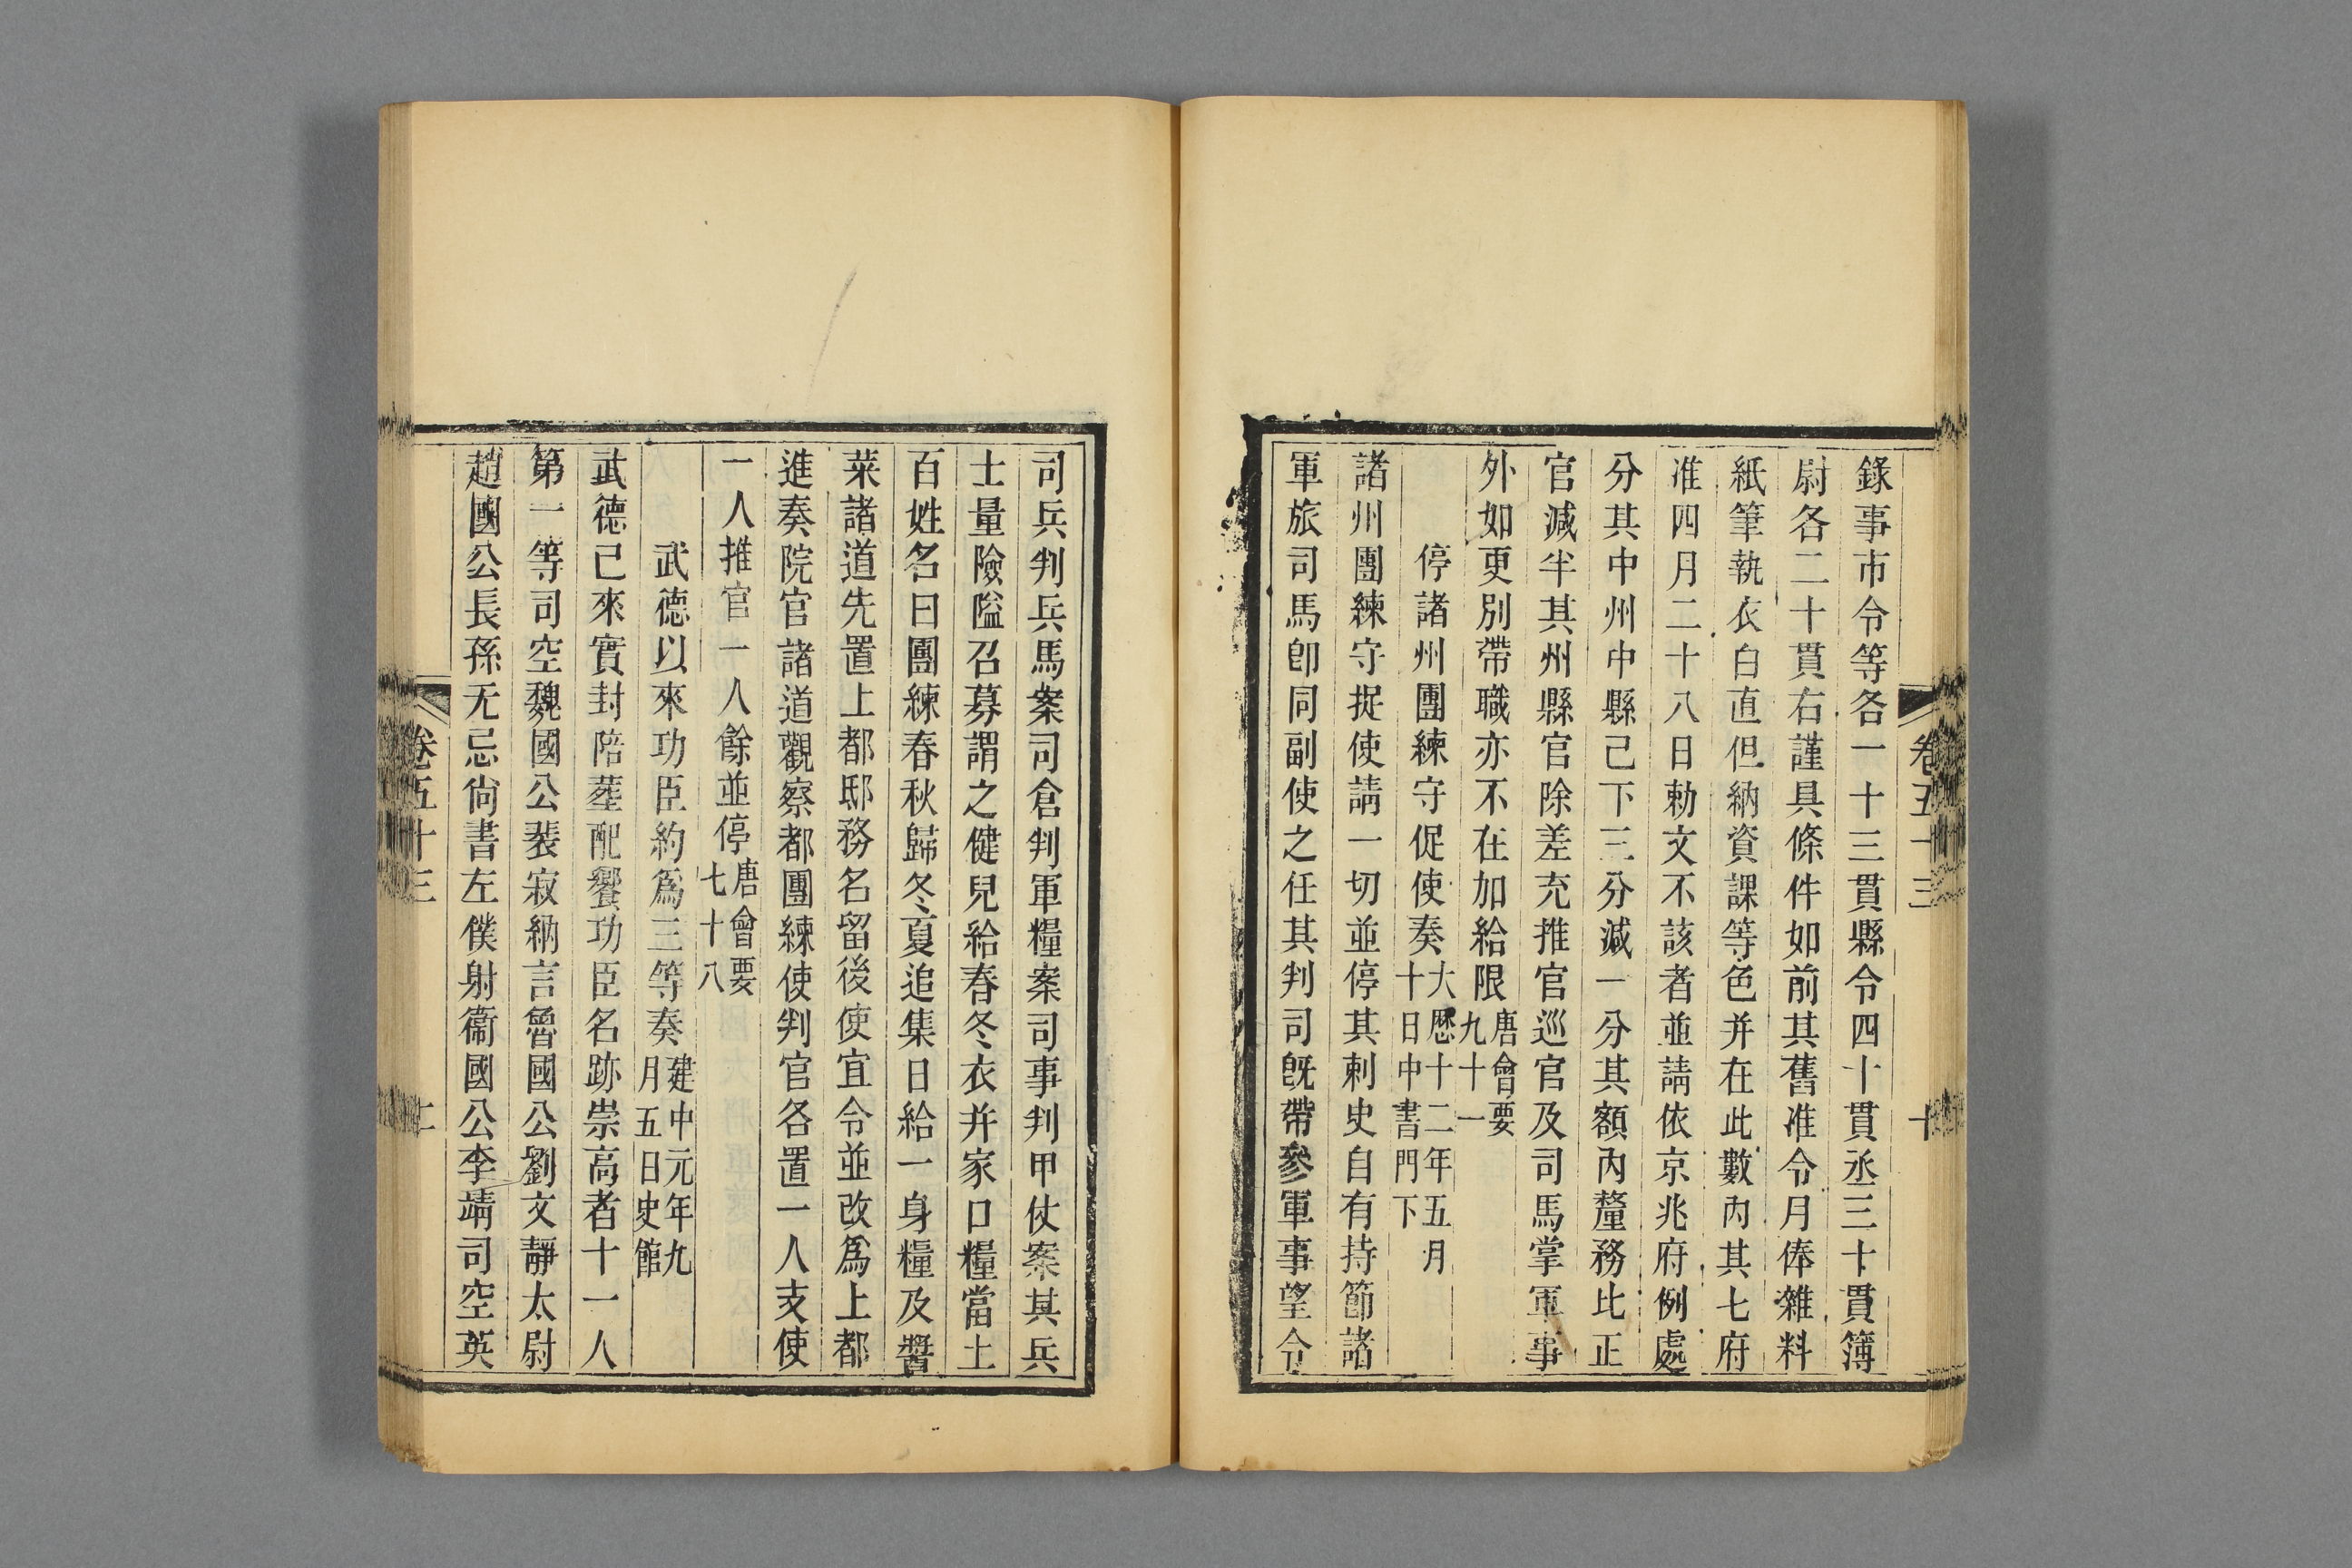 錄事市令等各一十三貫縣令四十貫丞三十貫簿
尉各二十貫右謹具條件如前其舊准令月俸雜料
紙筆執衣白直但納資課等色并在此數內其七府
准四月二十八日勅文不該者並請依京兆府例處
分其中州中縣已下三分減一分其額內釐務比正
官減半其州縣官除差充推官巡官及司馬掌軍事
外如更別帶職亦不在加給限唐會要九十一
停諸州團練守促使奏大歷十二年五月十日中書門下
諸州團練守捉使請一切並停其刺史自有持節諸
軍旅司馬卽同副使之任其判司旣帶參軍事望令
卷五十三
十
司兵判兵馬案司倉判軍糧案司事判甲仗案其兵
士量險隘召募謂之健兒給春冬衣并家口糧當土
百姓名曰團練春秋歸冬夏追集日給一身糧及醬
菜諸道先置上都邸務名留後使宜令並改爲上都
進奏院官諸道觀察都團練使判官各置一人支使
一人推官一人餘並停唐會要七十八
武德以來功臣約爲三等奏建中元年九月五日史館
武德已來實封陪葬配饗功臣名跡崇高者十一人
第一等司空魏國公裴寂納言魯國公劉文靜太尉
趙國公長孫无忌尙書左僕射衞國公李靖司空英
卷五十三